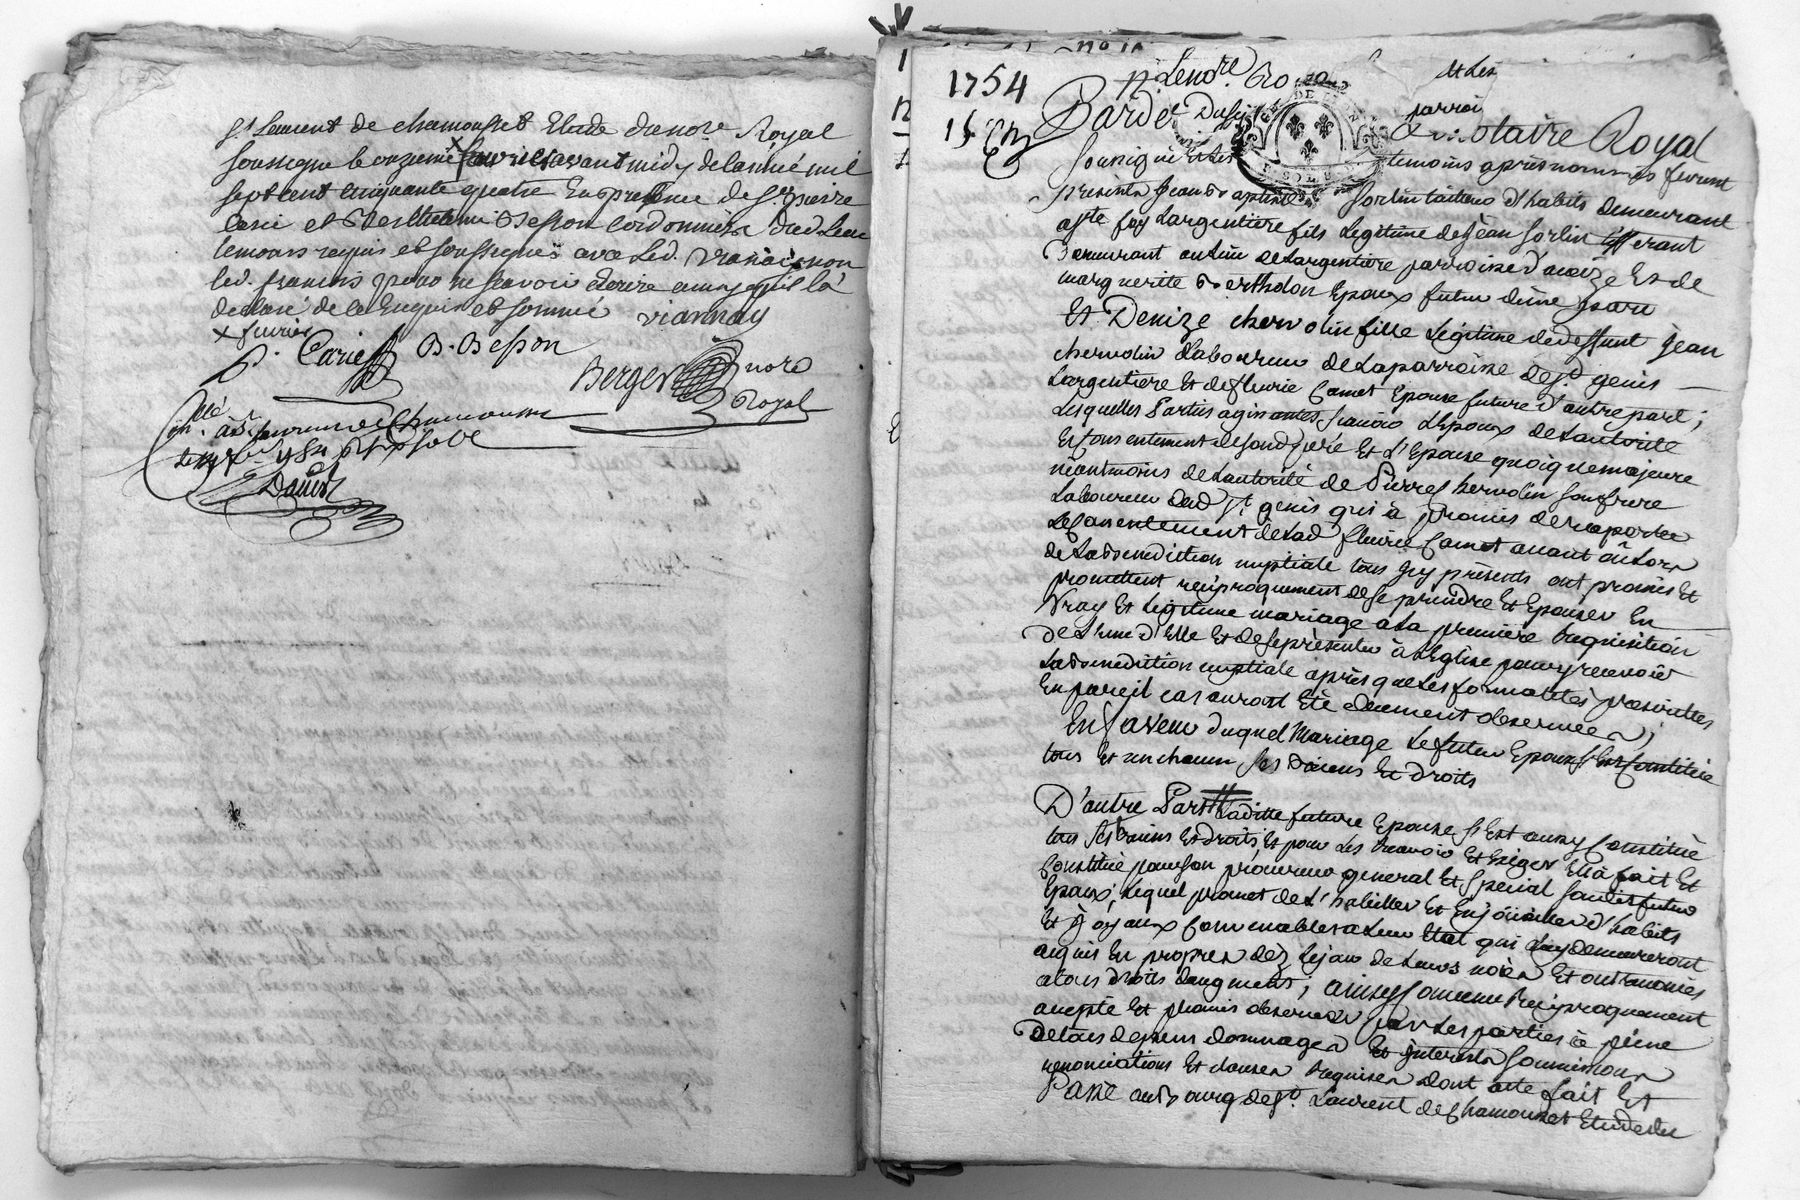 St Laurent de chamousset Etude du nore Royal
soussigné le onzieme x fevrier avant midy de lannée mil
sept cent cinquante quatre En presence de Sr. pierre
Carie et Berthelemi Besson cordonnier dud. lieu
temoins requis et soussignés avec led. Viannay non
led. francois pour ne scavoir écrire ainsy quil la
declaré de ce Enquis et sommé viannay
x fevrier
P. Carie B. Besson
Berger nore
Royal
Conlé. à St Laurent de Chamousset
Douet
1754
15
Pardt
notaire Royal
soussigné Et les temoins après nommés furent
présents Jean Baptiste Fortin tailleur d'habits demeurant
aste foy Largentiere fils Legitime de Jean Fortin
Demeurant au lieu de Largentiere parroisse d'aveize Et de
marguerite Berthdon Epoux futur d'une part
Et Denize chervolin fille Legitime de deffunt Jean
chervolin Laboureur de La parroisse de St genis
Largentiere Et de fleurie Camet Epouse future d'autre part;
Lesquelles Parties agissantes, scavoir L'Epoux de Lautorité
Et consentement de sond. père Et L'Epouse quoique majeure
néantmoins de Lautorité de Pierre chervolin son frere
Laboureur dud. St. genis qui à promis de raporter
Le consentement de Lad. fleurie Camet avant où Lors
de La Benediction nuptiale tous icy présents ont promis Et
promettent reciproquement de se prendre Et Epouser En
Vray Et Legitime mariage à La première Requisition
de L'une d'Elle Et de se présenter à L'Eglise pour y recevoir
La Benediction nuptiale après que Les formalités prescrittes
En pareil cas auront Eté duement observées;
En faveur duquel Mariage Le futur Epoux s'Est Constitué
tous Et un chacun ses Biens Et droits
D'autre Part Laditte future Epouse s'Est aussy Constitué
tous ses Biens Et droits, Et pour Les Recevoir Et Exiger Elle à fait Et
Constitué pour son procureur general Et special sondit futur
Epoux; Lequel promet de L'habiller Et Enjoüailler d'habits
Et Joyaux Convenables à Leur Etat qui Luy demeureront
aquis En propres déz Le jour de Leurs nôces Et
à tous droits d'augment; ainsy Convenu Reciproquement
accepté Et promis observer par Les parties à peine
De tous depens dommages Et Interests soumissions
renonciations Et clauses Requises dont acte fait Et
Passé au Bourg de St. Laurent de Chamousset Etude du